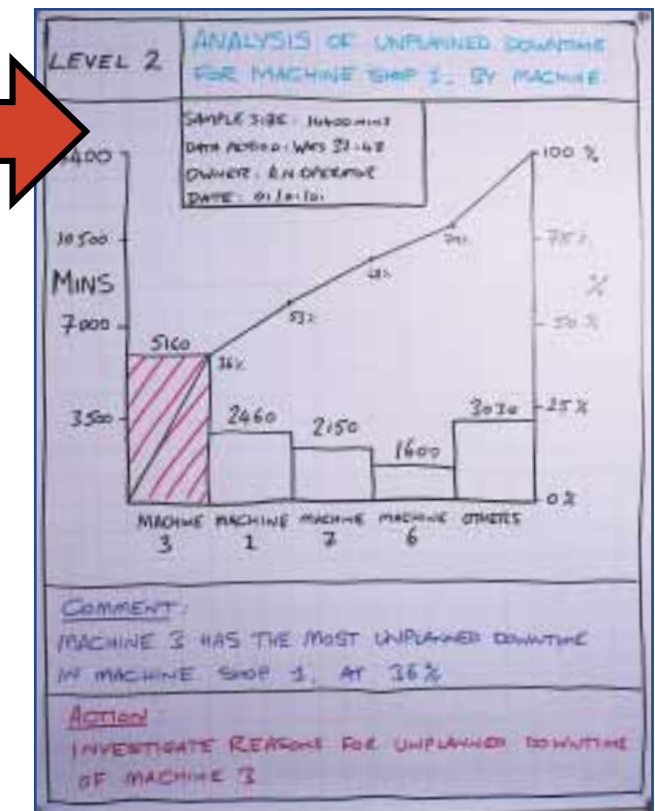 LEVEL 2
ANALYSIS OF UNPLANNED DOWNTIME
FOR MACHINE SHOP 1, BY MACHINE
SAMPLE SIZE: 14400 MINS
DATA PERIOD: WKS 37-48
OWNER: AN OPERATOR
DATE: 01/01/01
400
100 %
10500
75%
79%
68%
MINS
%
7000
50%
53%
5160
36%
3500
2460
2150
1600
3030
25%
0%
MACHINE MACHINE MACHINE MACHINE OTHERS
3 1 7 6
COMMENT:
MACHINE 3 HAS THE MOST UNPLANNED DOWNTIME
IN MACHINE SHOP 1, AT 36%
ACTION:
INVESTIGATE REASONS FOR UNPLANNED DOWNTIME
OF MACHINE 3